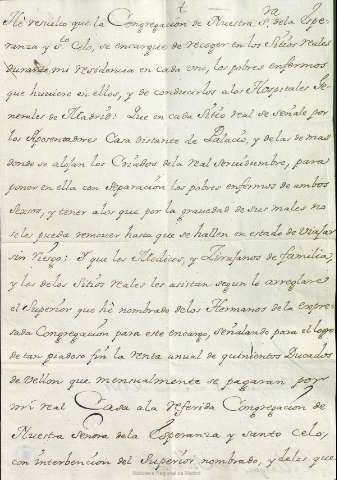 He resuelto que la Congregacion de Nuestra Sra. dela Espe-
ranza y Sto. Celo, se encargue de recoger en los Sitios reales
durante mi residencia en cada uno, los pobres enfermos
que huviere en ellos, y de conducirlos alos Hospitales Ge-
nerales de Madrid: Que en cada Sitio real se señale por
los Aposentadores Casa distante de Palacio, y delas demas
donde se alojan los Criados dela real Servidumbre, para
poner en ella con separacion los pobres enfermos de ambos
sexsos, y tener alos que por la gravedad de sus males no
se les pueda remover hasta que se hallen en estado de viajar
sin riesgo: Y que los Medicos, y Zirujanos de familia,
y los de los Sitios reales les asistan segun lo arreglare
el Superior que hè nombrado delos Hermanos de la expre-
sada Congregacion para este encargo, señalando para el logro
de tan piadoso fin la renta anual de quinientos Ducados
de vellon que mensualmente se pagaran por
mi real Casa ala referida Congregacion de
Nuestra Señora dela Esperanza y santo celo,
con interbencion del Superior nombrado, y delas que
Biblioteca Regional de Madrid